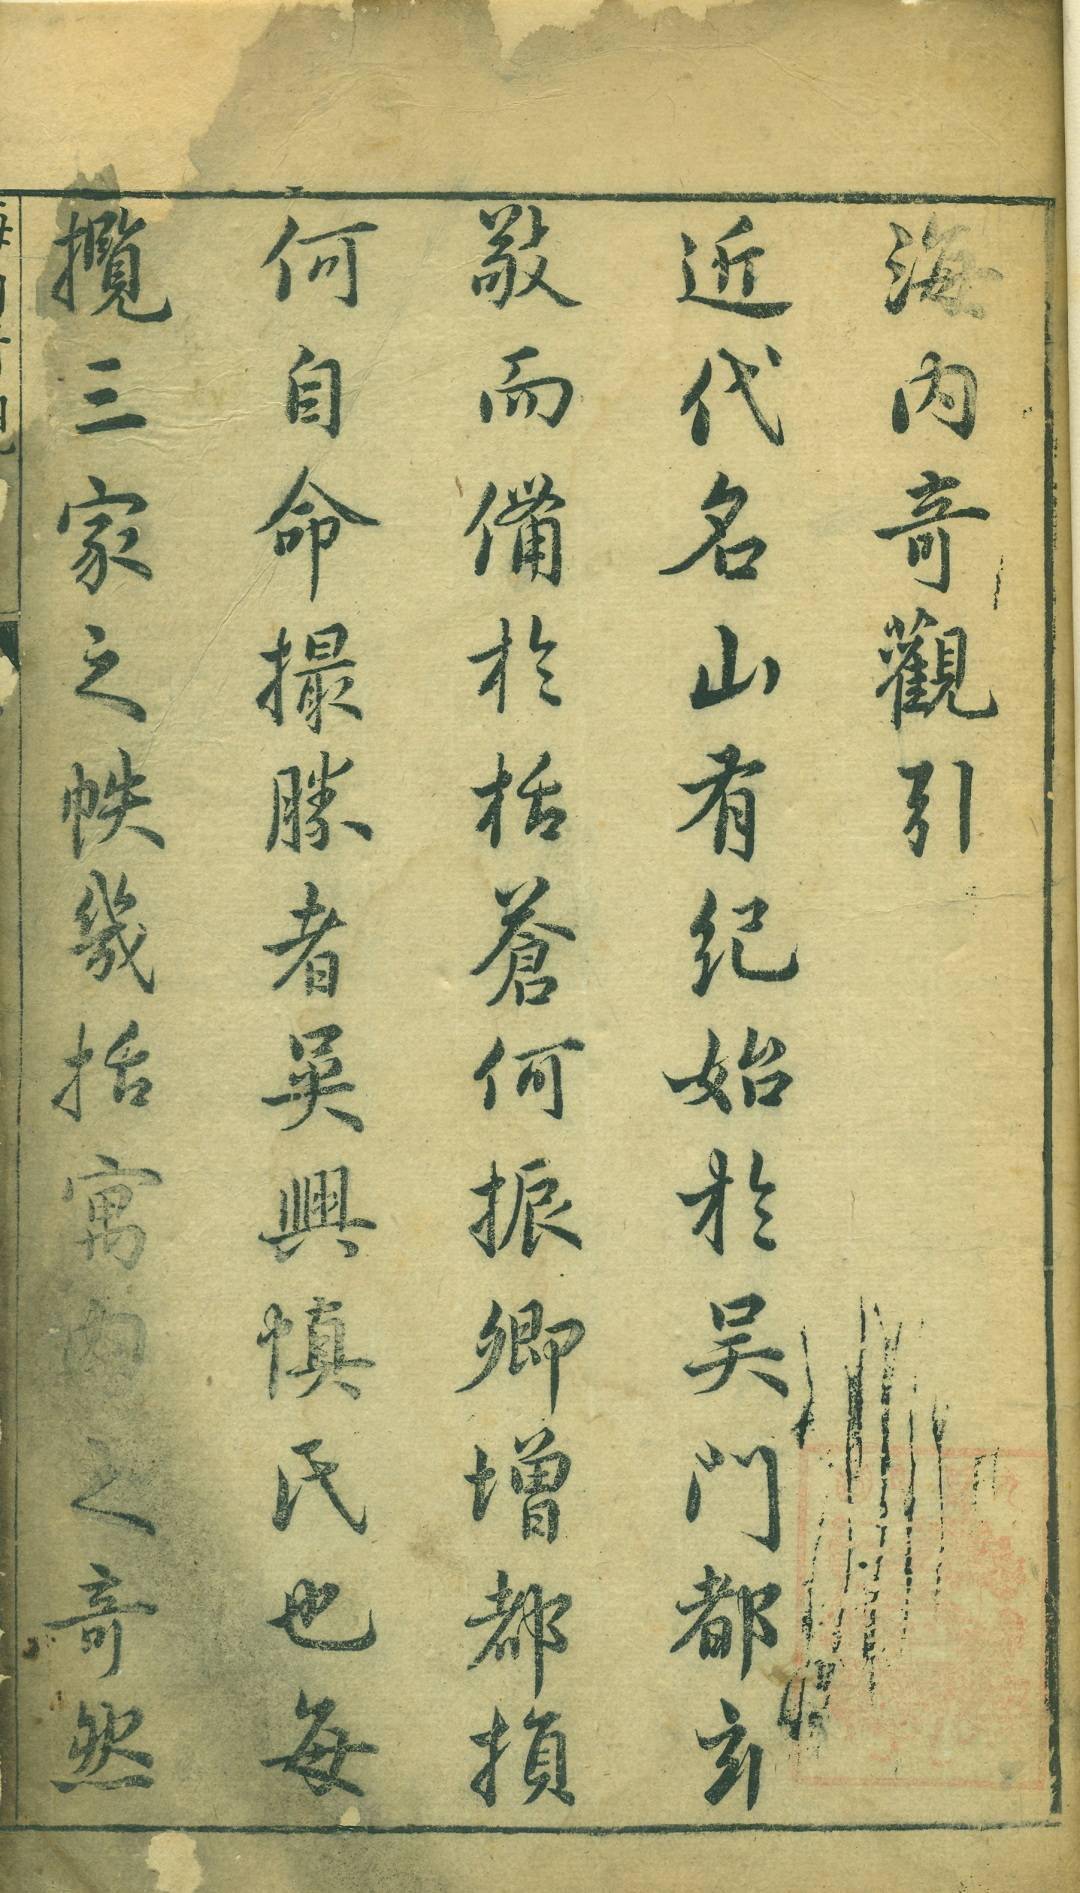 海內奇觀引
近代名山有紀始於吴門都玄
敬而備於栝蒼何振卿增都損
何自命撮勝者吴興愼氏也每
攬三家之帙幾括寓內之奇然
海內奇觀